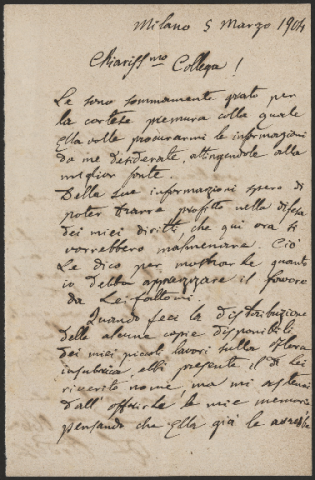 Milano 5 Marzo 1904
Chiariss.mo Collega!
Le sono sommamente grato per
la cortese premura colla quale
Ella volle procurarmi le informazioni
da me desiderate, attingendole alla
miglior fonte.
Delle sue informazioni spero di
poter trarre profitto nella difesa
dei miei diritti, che qui ora si
vorrebbero malmenare. Ciò
Le dico per mostrarle quanto
io debba apprezzare il favore
da Lei fattomi.
Quando feci la distribuzione
delle alcune copie disponibili
dei miei piccoli lavori sulla flora
insubrica, ebbi presente il di Lei
riverito nome, ma mi astenni
dall' offrirle le mie memorie
pensando che Ella già le avrebbe